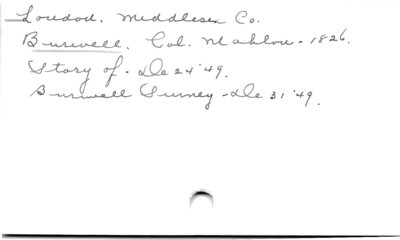 London. Middlesex Co.
Burwell. Col. Mahlon - 1826.
Story of - De 24 '49.
Burwell Survey - De 31 '49.